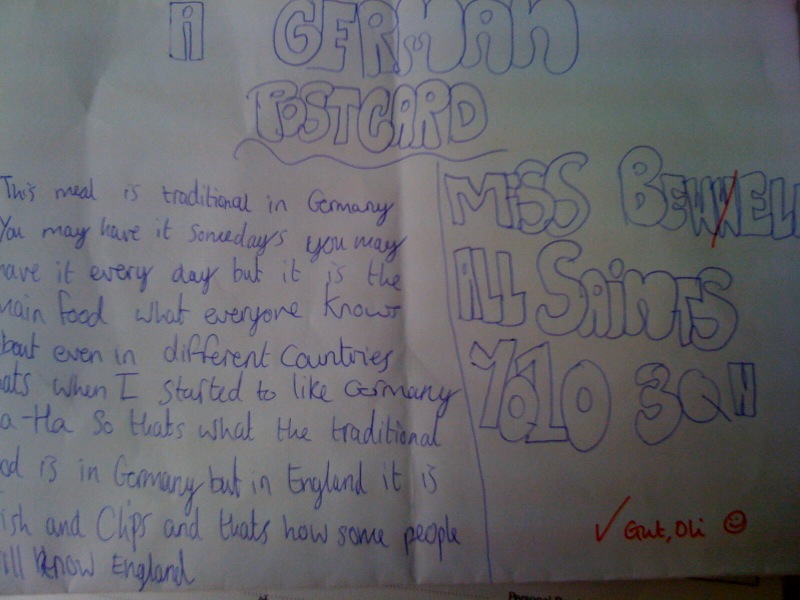 A GERMAN
POSTCARD
This meal is traditional in Germany
You may have it somedays you may
have it every day but it is the
main food what everyone knows
about even in different countries
ats when I started to like Germany
a-Ha So thats what the traditional
od is in Germany but in England it is
ish and Chips and thats how some people
ill know England
MiSS BEWHELL
ALL SAiNTS
YO10 3QN
✓ Gut, Oli ☺